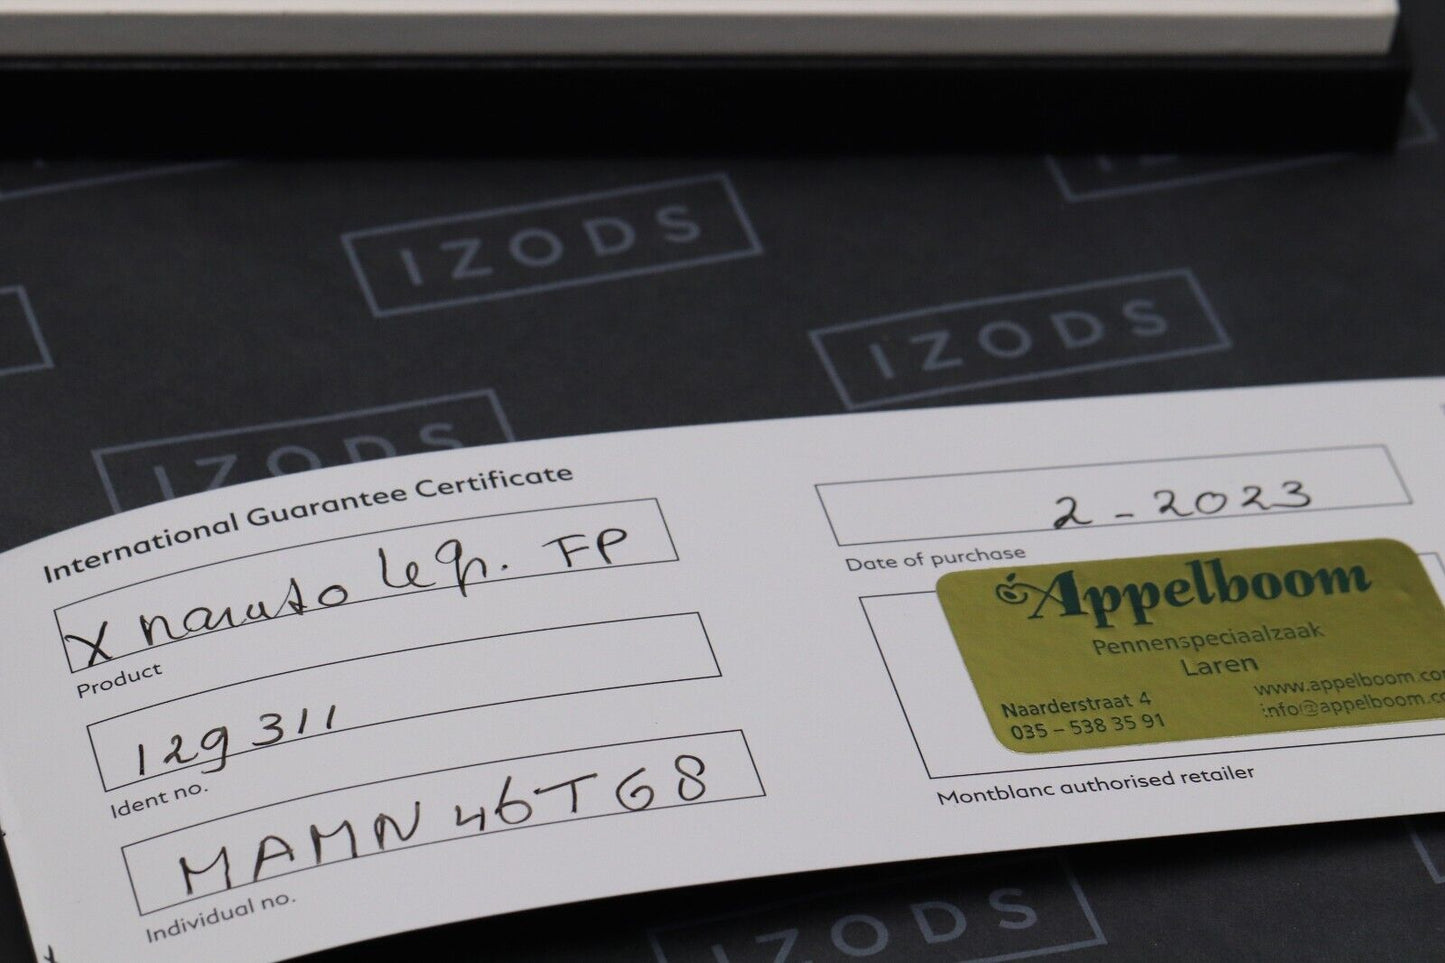 IZODS
IZODS
IZODS
International Guarantee Certificate
X naruto leg. FP
Product
129311
Ident no.
MAMN46TG8
Individual no.
2-2023
Date of purchase
Appelboom
Pennenspeciaalzaak
Laren
Naarderstraat 4
035 – 538 35 91
www.appelboom.co
info@appelboom.c
Montblanc authorised retailer
IZODS